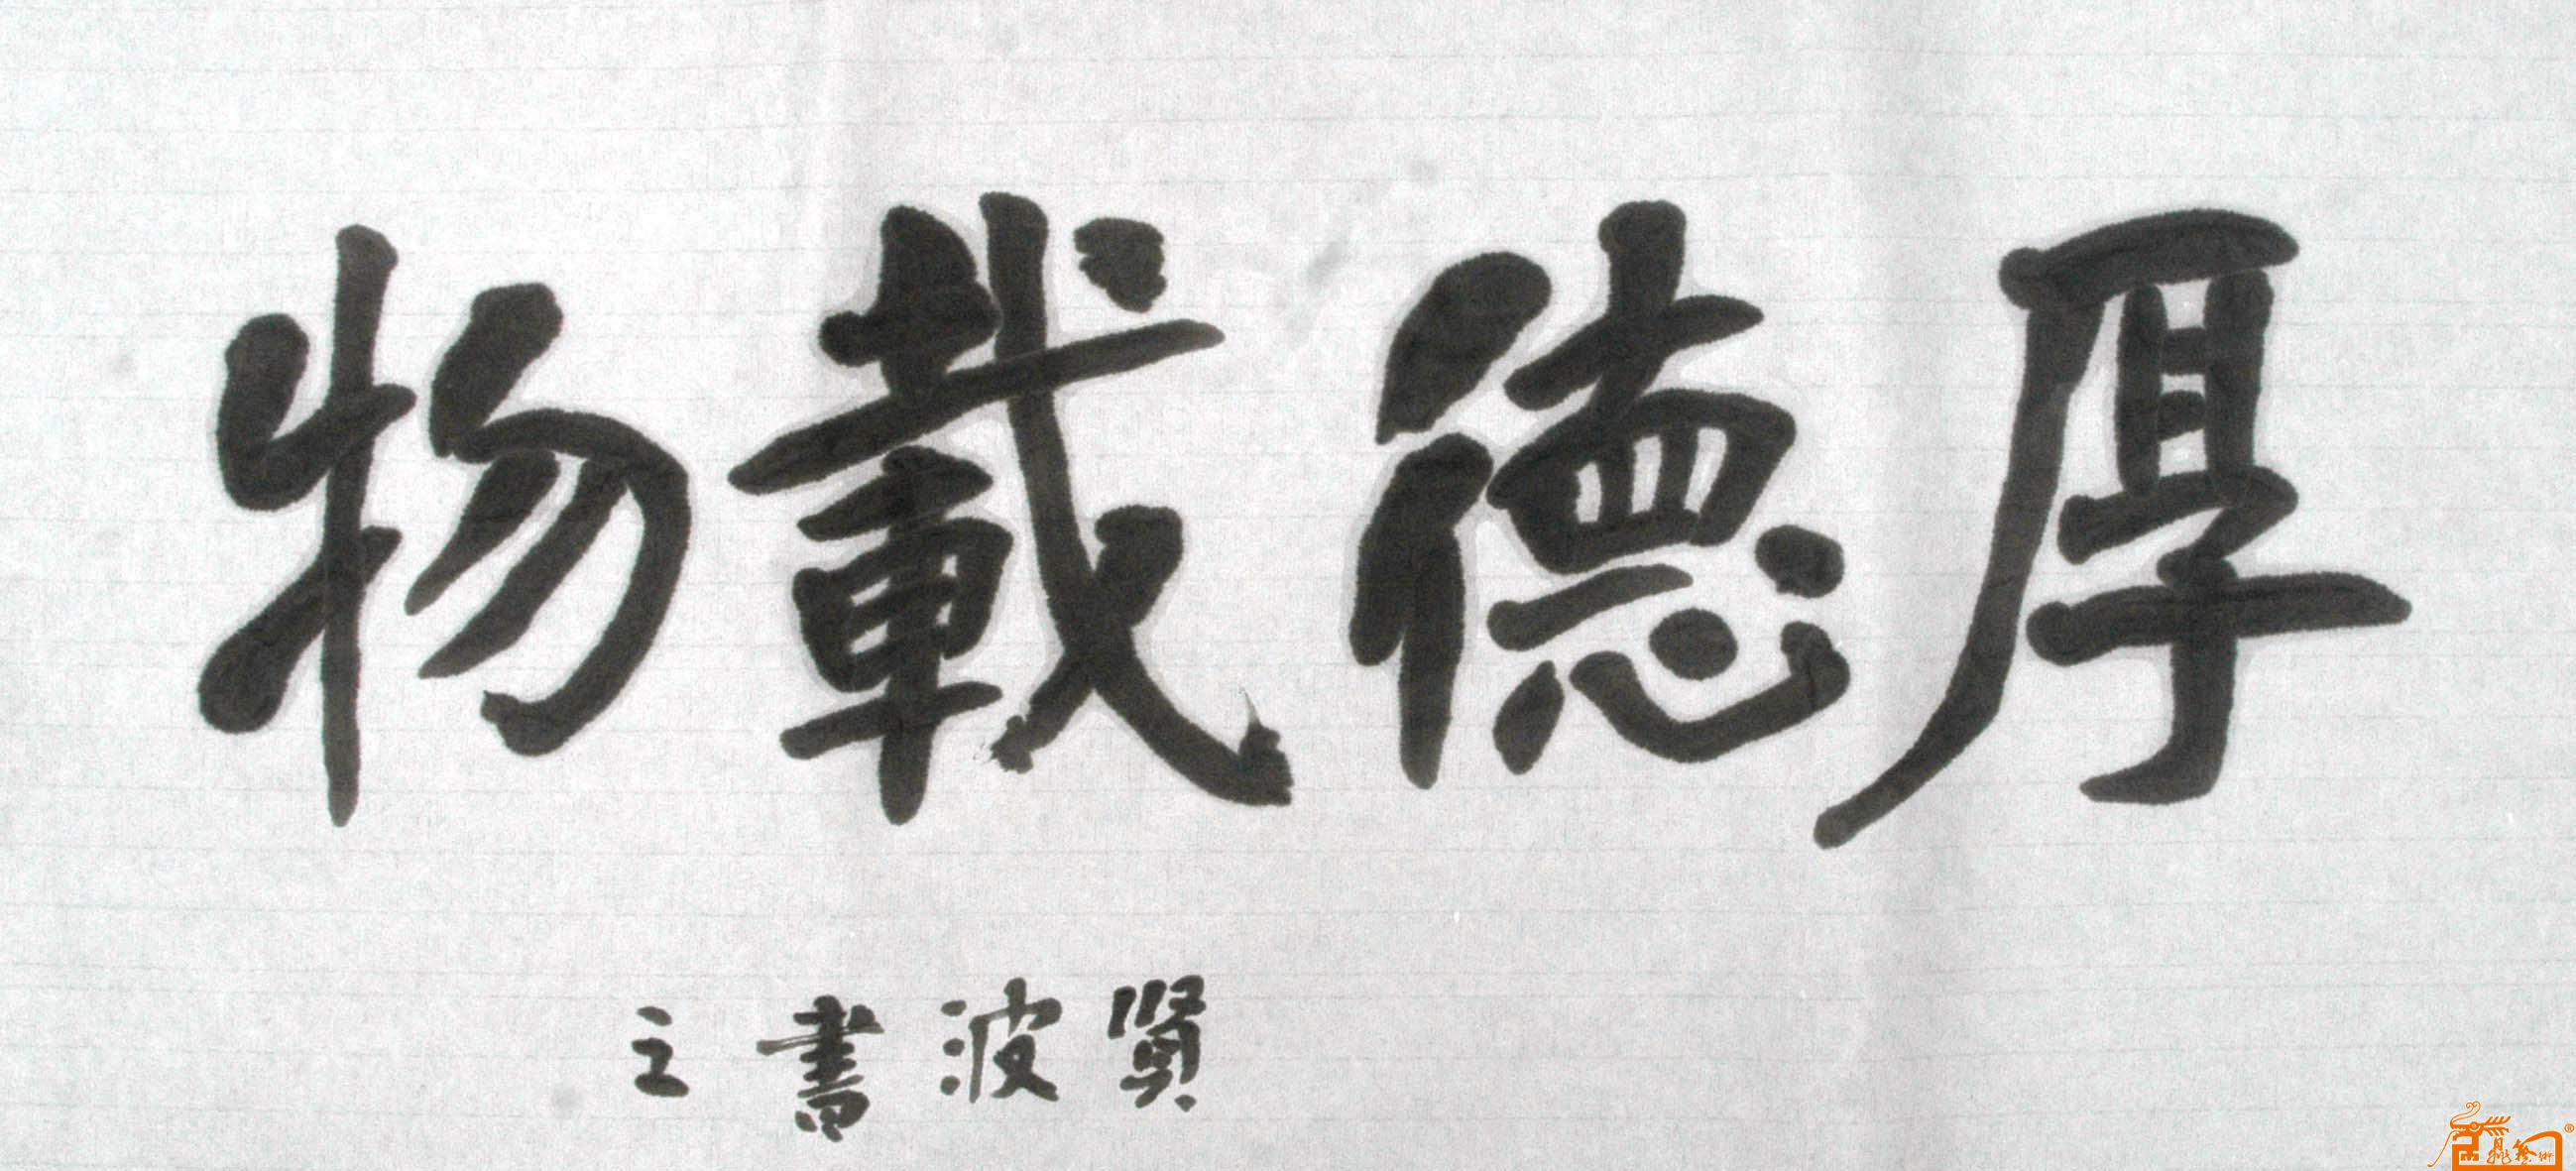 厚德載物
賢波書之